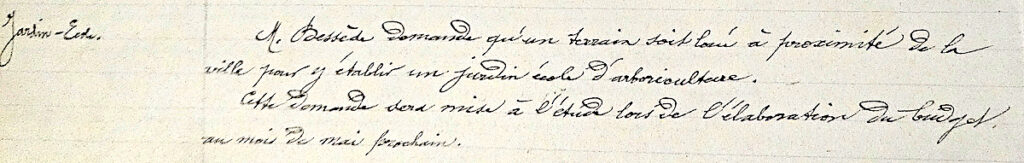 Jardin-Ecole.
M. Bessède demande qu'un terrain soit loué à proximité de la
ville pour y établir un jardin école d'arboriculture.
Cette demande sera mise à l'étude lors de l'élaboration du budget
au mois de mai prochain.